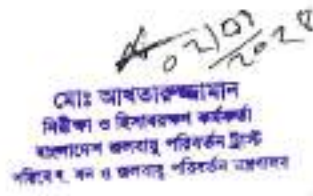 02/07/2024
মোঃ আখতারুজ্জামান
নিরীক্ষা ও হিসাবরক্ষণ কর্মকর্তা
বাংলাদেশ জলবায়ু পরিবর্তন ট্রাস্ট
পরিবেশ, বন ও জলবায়ু পরিবর্তন মন্ত্রণালয়